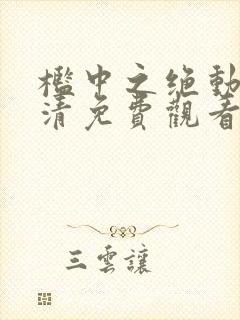 檻中之絶動
清免費觀看
三雲讓